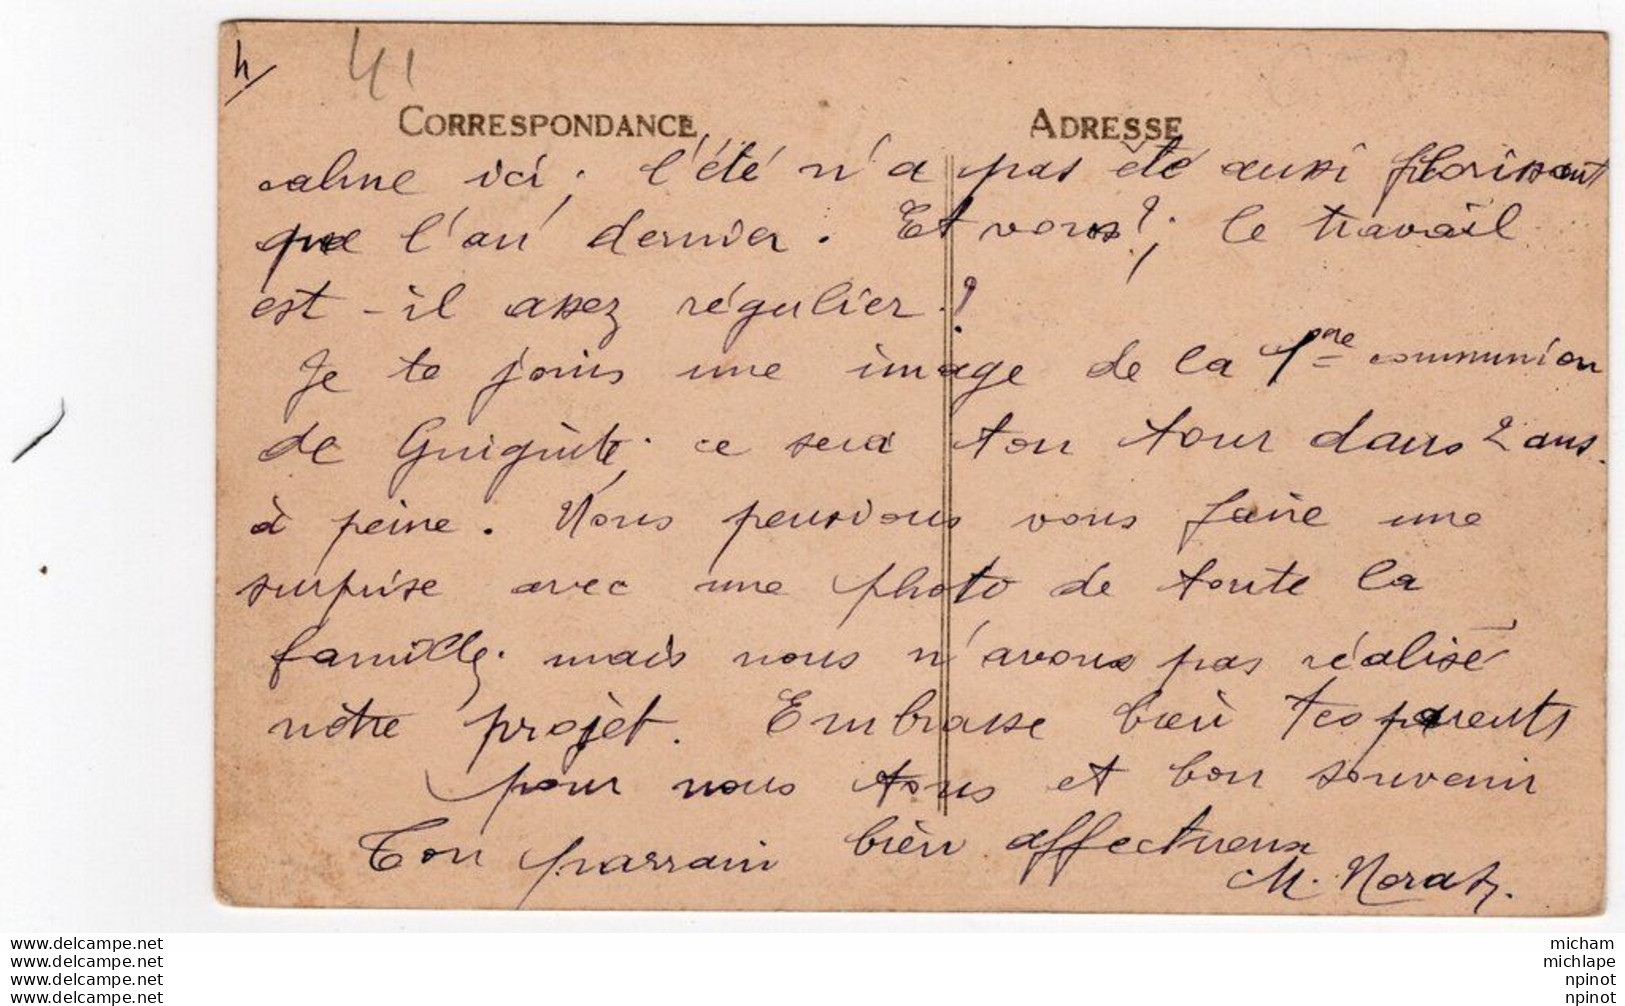 41
CORRESPONDANCE
ADRESSE
calme ici; l'été n'a pas été aussi florissant
que l'an dernier. Et vous?; le travail
est-il assez régulier?
Je te joins une image de la 1ère communion
de Guiguite; ce sera ton tour dans 2 ans
à peine. Nous pensions vous faire une
surprise avec une photo de toute la
famille; mais nous n'avons pas réalisé
nôtre projet. Embrasse bien tes parents
pour nous tous et bon souvenir
Ton parrain bien affectueux
M.
www.delcampe.net
www.delcampe.net
www.delcampe.net
www.delcampe.net
micham
michlape
npinot
npinot